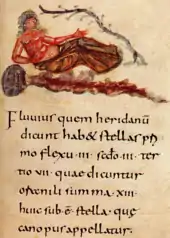 Fluuius quem heridanū
dicunt hab& stellas pri
mo flexu·iii· scdo·iii· ter
tio vii· quae dicuntur
os nili summa·xiii·
huic sub·ē·stella·quę
canopus appellatur·